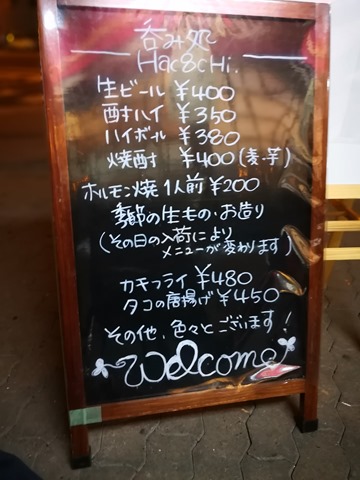 呑み処
Hac8cHi.
生ビール ¥400
酎ハイ ¥350
ハイボール ¥380
焼酎 ¥400(麦・芋)
ホルモン焼 1人前 ¥200
季節の生もの・お造り
(その日の入荷により
メニューが変わります)
カキフライ ¥480
タコの唐揚げ ¥450
その他、色々とございます!
Welcome